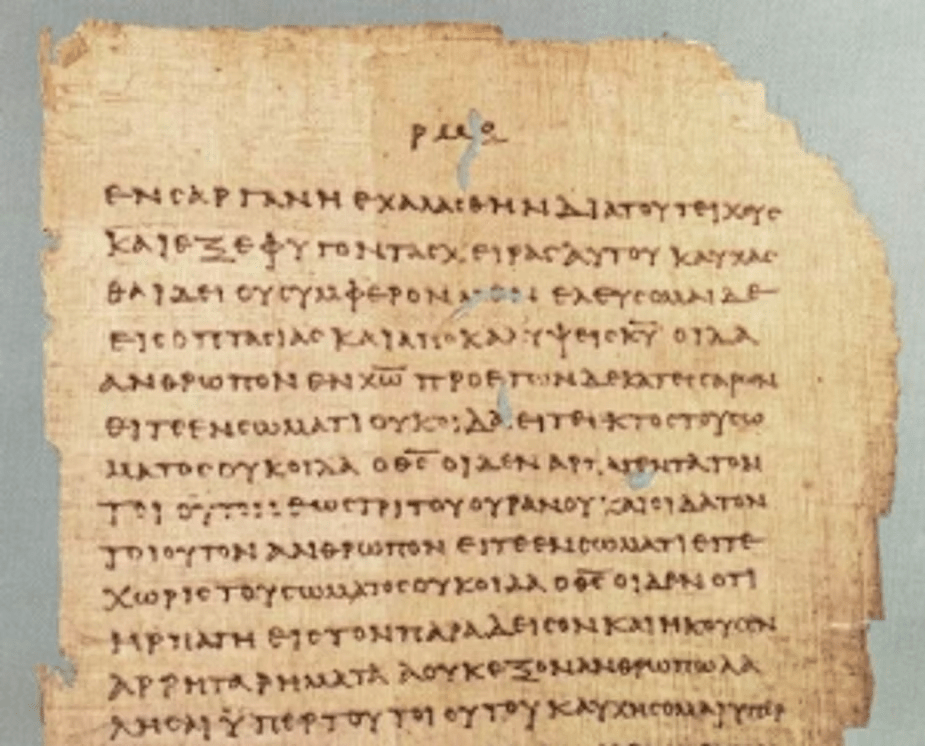 ΕΝ ΣΑΡΓΑΝΗ ΕΧΑΛΑΣΘΗΝ ΔΙΑ ΤΟΥ ΤΕΙΧΟΥΣ
ΚΑΙ ΕΞΕΦΥΓΟΝ ΤΑΣ ΧΕΙΡΑΣ ΑΥΤΟΥ ΚΑΥΧΑΣ
ΘΑΙ ΔΕΙ ΟΥ ΣΥΜΦΕΡΟΝ ΕΛΕΥΣΟΜΑΙ ΔΕ
ΕΙΣ ΟΠΤΑΣΙΑΣ ΚΑΙ ΑΠΟΚΑΛΥΨΕΙΣ ΚΥ ΟΙΔΑ
ΑΝΘΡΩΠΟΝ ΕΝ ΧΩ ΠΡΟ ΕΤΩΝ ΔΕΚΑΤΕΣΣΑΡΩΝ
ΕΙΤΕ ΕΝ ΣΩΜΑΤΙ ΟΥΚ ΟΙΔΑ ΕΙΤΕ ΕΚΤΟΣ ΤΟΥ ΣΩ
ΜΑΤΟΣ ΟΥΚ ΟΙΔΑ Ο ΘΣ ΟΙΔΕΝ ΑΡΠΑΓΕΝΤΑ ΤΟΝ
ΤΟΙΟΥΤΟΝ ΕΩΣ ΤΡΙΤΟΥ ΟΥΡΑΝΟΥ ΚΑΙ ΟΙΔΑ ΤΟΝ
ΤΟΙΟΥΤΟΝ ΑΝΘΡΩΠΟΝ ΕΙΤΕ ΕΝ ΣΩΜΑΤΙ ΕΙΤΕ
ΧΩΡΙΣ ΤΟΥ ΣΩΜΑΤΟΣ ΟΥΚ ΟΙΔΑ Ο ΘΣ ΟΙΔΕΝ ΟΤΙ
ΗΡΠΑΓΗ ΕΙΣ ΤΟΝ ΠΑΡΑΔΕΙΣΟΝ ΚΑΙ ΗΚΟΥΣΕΝ
ΑΡΡΗΤΑ ΡΗΜΑΤΑ Α ΟΥΚ ΕΞΟΝ ΑΝΘΡΩΠΩ ΛΑ
ΛΗΣΑΙ ΫΠΕΡ ΤΟΥ ΤΟΙΟΥΤΟΥ ΚΑΥΧΗΣΟΜΑΙ ΥΠΕΡ